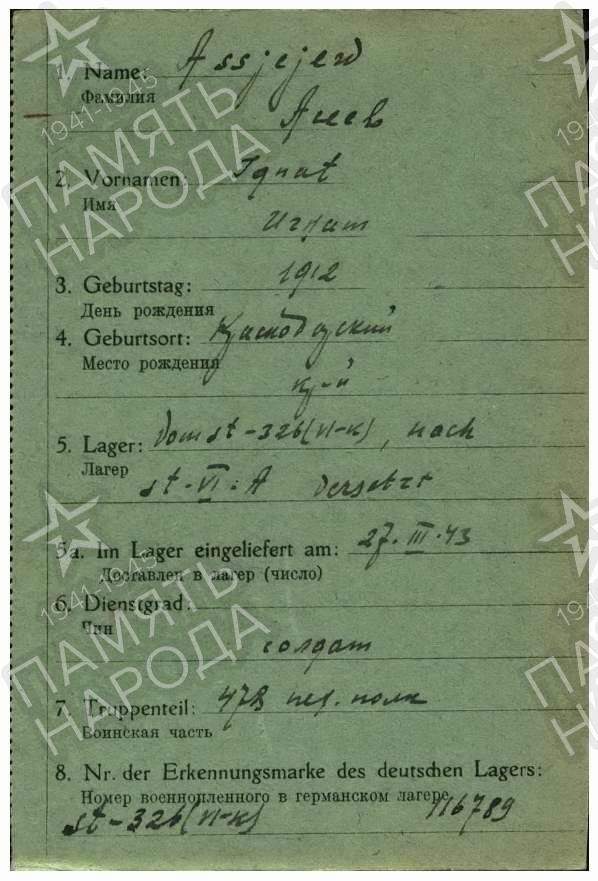 1. Name: Assjejew
Фамилия
Асеев
2. Vornamen: Ignat
Имя
Игнат
3. Geburtstag: 1912
День рождения
4. Geburtsort: Краснодарский
Место рождения
кр-й
5. Lager: Vom st-326(VI-K), nach
Лагер
st-VI-A versetzt
5a. Im Lager eingeliefert am: 27.III.43
Доставлен в лагер (число)
6. Dienstgrad:
Чин
солдат
7. Truppenteil: 478 пех. полк
Воинская часть
8. Nr. der Erkennungsmarke des deutschen Lagers:
Номер военнопленного в германском лагере
st-326(VI-K) 116789
1941-1945
ПАМЯТЬ
НАРОДА